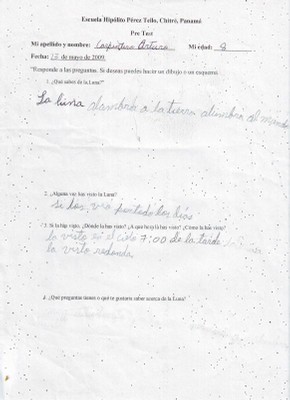 Escuela Hipólito Pérez Tello, Chitré, Panamá
Pre Test
Mi apellido y nombre: Arturo Mi edad: 8
Fecha: de mayo de 2009
"Responde a las preguntas. Si deseas puedes hacer un dibujo o un esquema.
1. ¿Qué sabes de la Luna?
La luna alumbra a la tierra alumbra el mundo
2. ¿Alguna vez has visto la Luna?
Si los días
3. Si la has visto, ¿Dónde la has visto? ¿A que hora la has visto? ¿Cómo la has visto?
la visto en el cielo 7:00 de la tarde
la visto redonda
4. ¿Qué preguntas tienes o qué te gustaría saber acerca de la Luna?